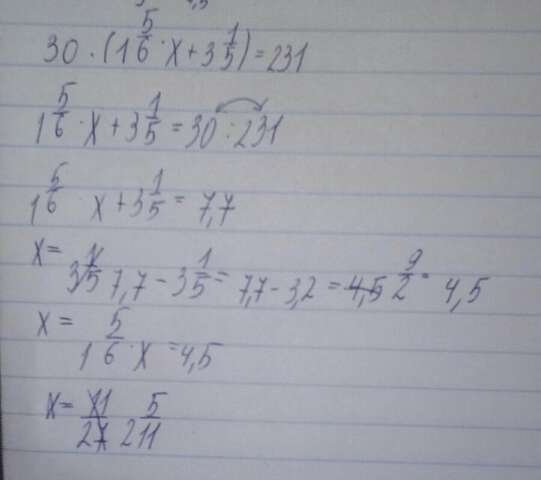 30 · (1 5/6 · x + 3 1/5) = 231
1 5/6 · x + 3 1/5 = 30 : 231
1 5/6 x + 3 1/5 = 7,7
x = 7,7 - 3 1/5 = 7,7 - 3,2 = 4,5 9/2 = 4,5
x = 1 5/6 · x = 4,5
x = 2 5/11